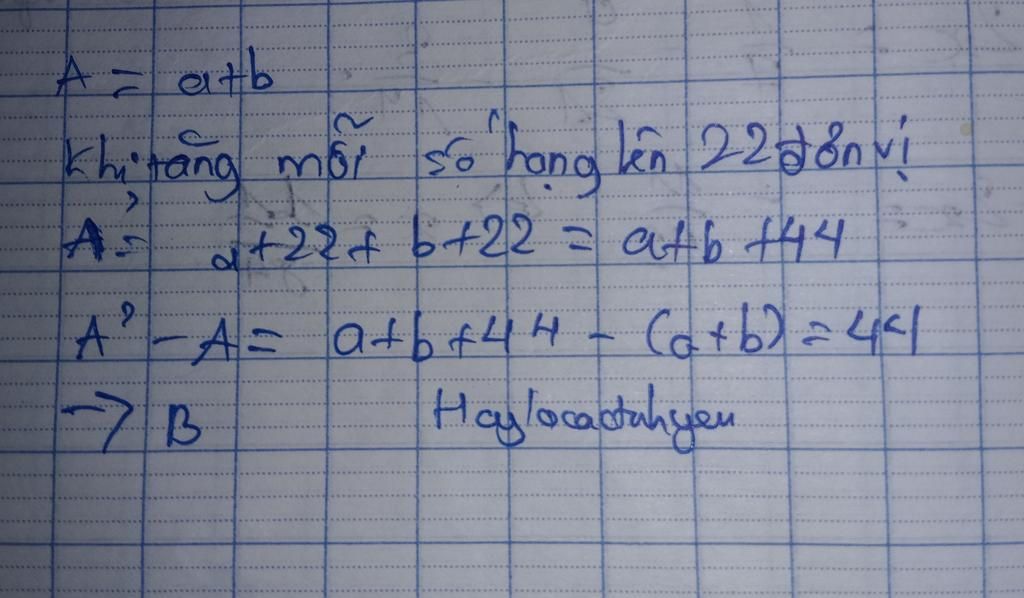 A = a+b
Khi tăng mỗi số hạng lên 22 đơn vị
A' = a+22+ b+22 = a+b+44
A' - A = a+b+44 - (a+b) = 44
→ B